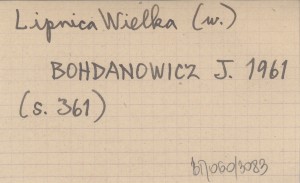 Lipnica Wielka (w.)
BOHDANOWICZ J. 1961
(s. 361)
BJ/060/3083